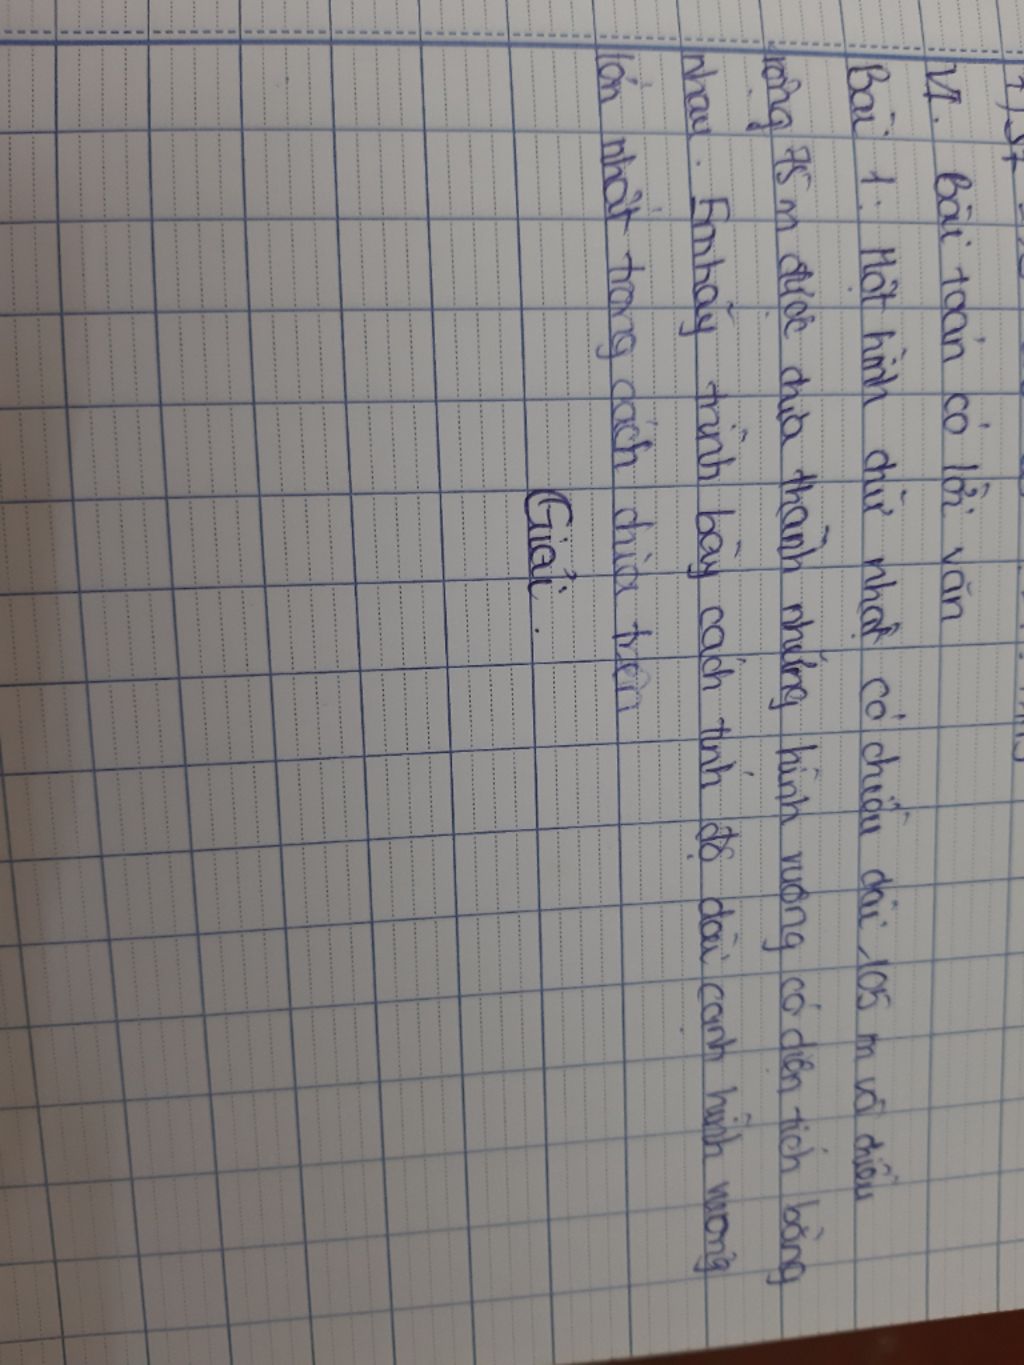 VI. Bài toán có lời văn
Bài 1: Một hình chữ nhật có chiều dài 105 m và chiều
rộng 75 m được chia thành những hình vuông có diện tích bằng
nhau. Em hãy trình bày cách tính độ dài cạnh hình vuông
lớn nhất trong cách chia trên
Giải.